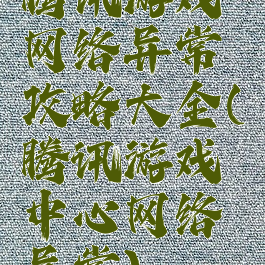 腾讯游戏
网络异常
攻略大全(
腾讯游戏
中心网络
异常)